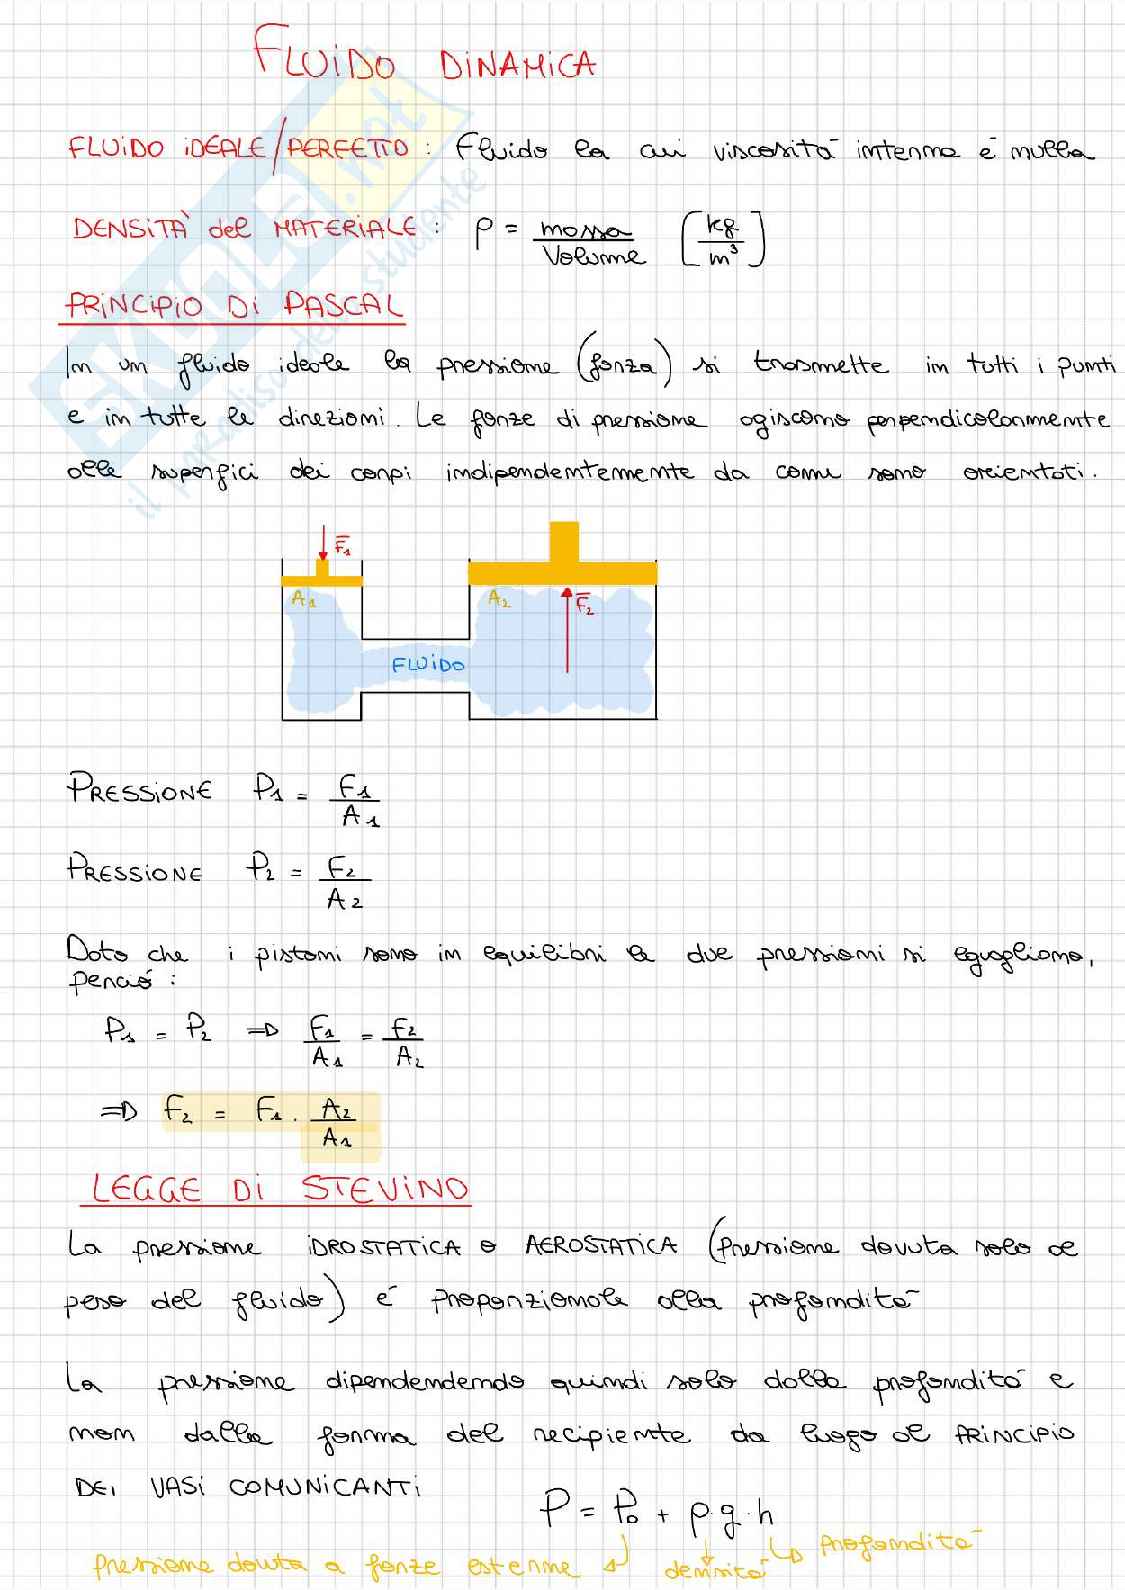 FLUIDO DINAMICA
FLUIDO IDEALE/PERFETTO: Fluido la cui viscosità interna è nulla
DENSITÀ del MATERIALE: ρ = massa/Volume [kg/m³]
PRINCIPIO DI PASCAL
In un fluido ideale la pressione (forza) si trasmette in tutti i punti
e in tutte le direzioni. Le forze di pressione agiscono perpendicolarmente
alle superfici dei corpi indipendentemente da come sono orientati.
F₁
A₁ A₂ F₂
FLUIDO
PRESSIONE P₁ = F₁/A₁
PRESSIONE P₂ = F₂/A₂
Dato che i pistoni sono in equilibri le due pressioni si eguagliano,
perciò:
P₁ = P₂ ⇒ F₁/A₁ = F₂/A₂
⇒ F₂ = F₁ · A₂/A₁
LEGGE DI STEVINO
La pressione IDROSTATICA o AEROSTATICA (Pressione dovuta solo al
peso del fluido) è proporzionale alla profondità
La pressione dipendendendo quindi solo dalla profondità e
non dalla forma del recipiente da luogo al PRINCIPIO
DEI VASI COMUNICANTI
P = P₀ + ρ·g·h
↳ Profondità
Pressione dovuta a forze esterne densità
SKUOLA.net
il paradiso dello studente